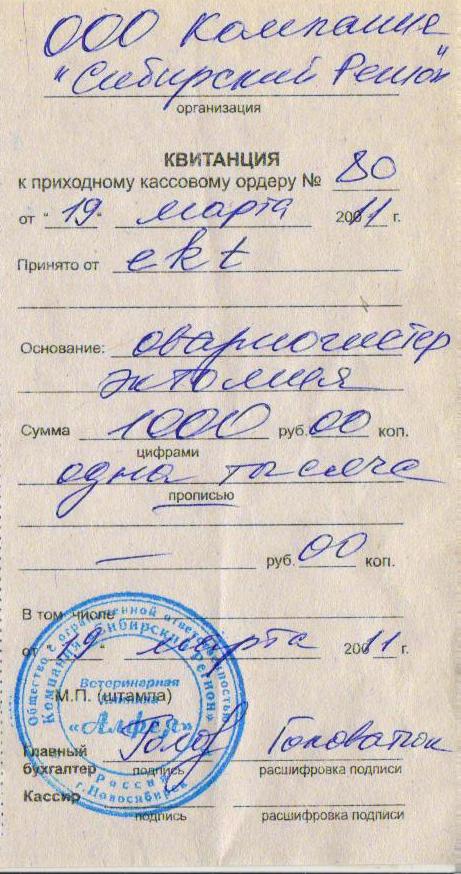 ООО Компания
"Сибирский Регион"
организация
КВИТАНЦИЯ
к приходному кассовому ордеру № 80
от "19" марта 2011 г.
Принято от ekt
Основание: овариогистер
эктомия
Сумма 1000 руб. 00 коп.
цифрами
одна тысяча
прописью
— руб. 00 коп.
В том числе
от "19" марта 2011 г.
Общество с ограниченной ответственностью
Компания «Сибирский Регион»
Ветеринарная
клиника
М.П. (штампа)
Главный
бухгалтер Головатюк
подпись расшифровка подписи
Россия
г.Новосибирск
Кассир
подпись расшифровка подписи